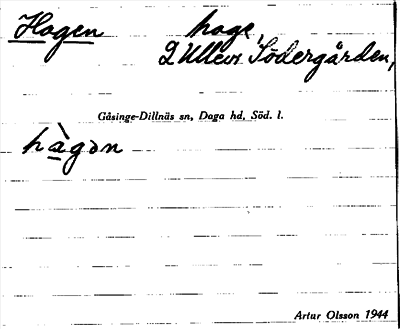 Hagen hage,
L Ullevi Södergården,
Gåsinge-Dillnäs sn, Daga hd, Söd. l.
hàgən
Artur Olsson 1944